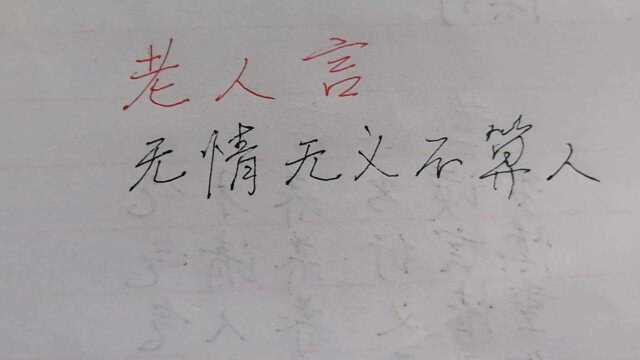 老人言
无情无义不算人